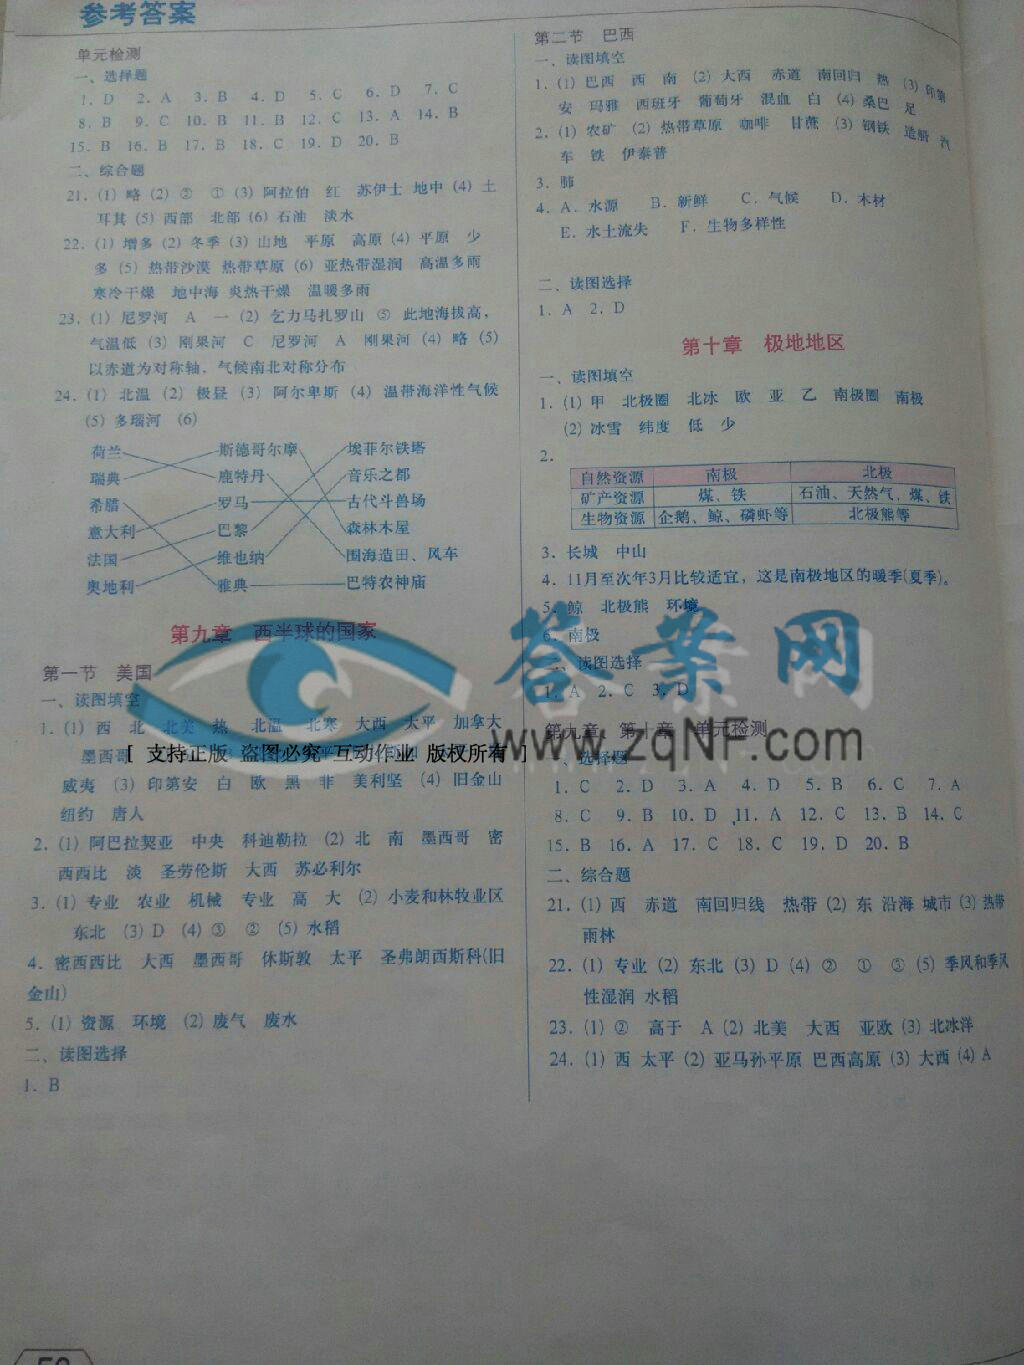 参考答案
单元检测
一、选择题
1. D 2. A 3. B 4. D 5. C 6. D 7. C
8. B 9. C 10. B 11. B 12. C 13. A 14. B
15. B 16. B 17. B 18. C 19. D 20. B
二、综合题
21. (1) 略 (2) ② ① (3) 阿拉伯 红 苏伊士 地中 (4) 土
耳其 (5) 西部 北部 (6) 石油 淡水
22. (1) 增多 (2) 冬季 (3) 山地 平原 高原 (4) 平原 少
多 (5) 热带沙漠 热带草原 (6) 亚热带湿润 高温多雨
寒冷干燥 地中海 炎热干燥 温暖多雨
23. (1) 尼罗河 A 一 (2) 乞力马扎罗山 ⑤ 此地海拔高,
气温低 (3) 刚果河 C 尼罗河 A 刚果河 (4) 略 (5)
以赤道为对称轴，气候南北对称分布
24. (1) 北温 (2) 极昼 (3) 阿尔卑斯 (4) 温带海洋性气候
(5) 多瑙河 (6)
荷兰 斯德哥尔摩 埃菲尔铁塔
瑞典 鹿特丹 音乐之都
希腊 罗马 古代斗兽场
意大利 巴黎 森林木屋
法国 维也纳 围海造田、风车
奥地利 雅典 巴特农神庙
第九章 西半球的国家
第一节 美国
一、读图填空
1. (1) 西 北 北美 热 北温 北寒 大西 太平 加拿大
墨西哥
[ 支持正版 盗图必究 互动作业 版权所有 ]
威夷 (3) 印第安 白 欧 黑 非 美利坚 (4) 旧金山
纽约 唐人
2. (1) 阿巴拉契亚 中央 科迪勒拉 (2) 北 南 墨西哥 密
西西比 淡 圣劳伦斯 大西 苏必利尔
3. (1) 专业 农业 机械 专业 高 大 (2) 小麦和林牧业区
东北 (3) D (4) ③ ② (5) 水稻
4. 密西西比 大西 墨西哥 休斯敦 太平 圣弗朗西斯科(旧
金山)
5. (1) 资源 环境 (2) 废气 废水
二、读图选择
1. B
第二节 巴西
一、读图填空
1. (1) 巴西 西 南 (2) 大西 赤道 南回归 热 (3) 印第
安 玛雅 西班牙 葡萄牙 混血 白 (4) 桑巴 足
2. (1) 农矿 (2) 热带草原 咖啡 甘蔗 (3) 钢铁 造船 汽
车 铁 伊泰普
3. 肺
4. A. 水源 B. 新鲜 C. 气候 D. 木材
E. 水土流失 F. 生物多样性
二、读图选择
1. A 2. D
第十章 极地地区
一、读图填空
1. (1) 甲 北极圈 北冰 欧 亚 乙 南极圈 南极
(2) 冰雪 纬度 低 少
2.
自然资源 南极 北极
矿产资源 煤、铁 石油、天然气、煤、铁
生物资源 企鹅、鲸、磷虾等 北极熊等
3. 长城 中山
4. 11月至次年3月比较适宜，这是南极地区的暖季(夏季)。
5. 鲸 北极熊 环境
6. 南极
二、读图选择
1. A 2. C 3. D
答案网
www.zqNF.com
第九章 第十章 单元检测
一、选择题
1. C 2. D 3. A 4. D 5. B 6. C 7. A
8. C 9. B 10. D 11. A 12. D 13. B 14. C
15. B 16. A 17. C 18. C 19. D 20. B
二、综合题
21. (1) 西 赤道 南回归线 热带 (2) 东 沿海 城市 (3) 热带
雨林
22. (1) 专业 (2) 东北 (3) D (4) ② ① ③ (5) 季风和季风
性湿润 水稻
23. (1) ② 高于 A (2) 北美 大西 亚欧 (3) 北冰洋
24. (1) 西 太平 (2) 亚马孙平原 巴西高原 (3) 大西 (4) A